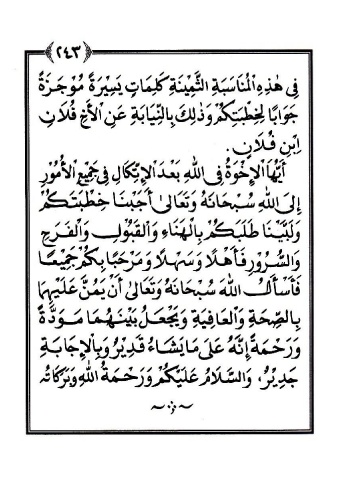 ﴿٢٤٣﴾
فِى هٰذِهِ الْمُنَاسَبَةِ الثَّمِيْنَةِ كَلِمَاتٍ يَسِيْرَةً مُوْجَزَةً
جَوَابًا لِخِطْبَتِكُمْ وَذٰلِكَ بِالنِّيَابَةِ عَنِ الْأَخِ فُلَانٍ
ابْنِ فُلَانٍ.
أَيُّهَا الْإِخْوَةُ فِى اللهِ بَعْدَ الْإِتِّكَالِ فِى جَمِيْعِ الْأُمُوْرِ
إِلَى اللهِ سُبْحَانَهُ وَتَعَالَى أَجَبْنَا خِطْبَتَكُمْ
وَلَبَّيْنَا طَلَبَكُمْ بِالْهَنَاءِ وَالْقَبُوْلِ وَالْفَرَحِ
وَالسُّرُوْرِ فَأَهْلًا وَسَهْلًا وَمَرْحَبًا بِكُمْ جَمِيْعًا
فَأَسْأَلُ اللهَ سُبْحَانَهُ وَتَعَالَى أَنْ يَمُنَّ عَلَيْهِمَا
بِالصِّحَّةِ وَالْعَافِيَةِ وَيَجْعَلَ بَيْنَهُمَا مَوَدَّةً
وَرَحْمَةً إِنَّهُ عَلَى مَا يَشَاءُ قَدِيْرٌ وَبِالْإِجَابَةِ
جَدِيْرٌ، وَالسَّلَامُ عَلَيْكُمْ وَرَحْمَةُ اللهِ وَبَرَكَاتُهُ